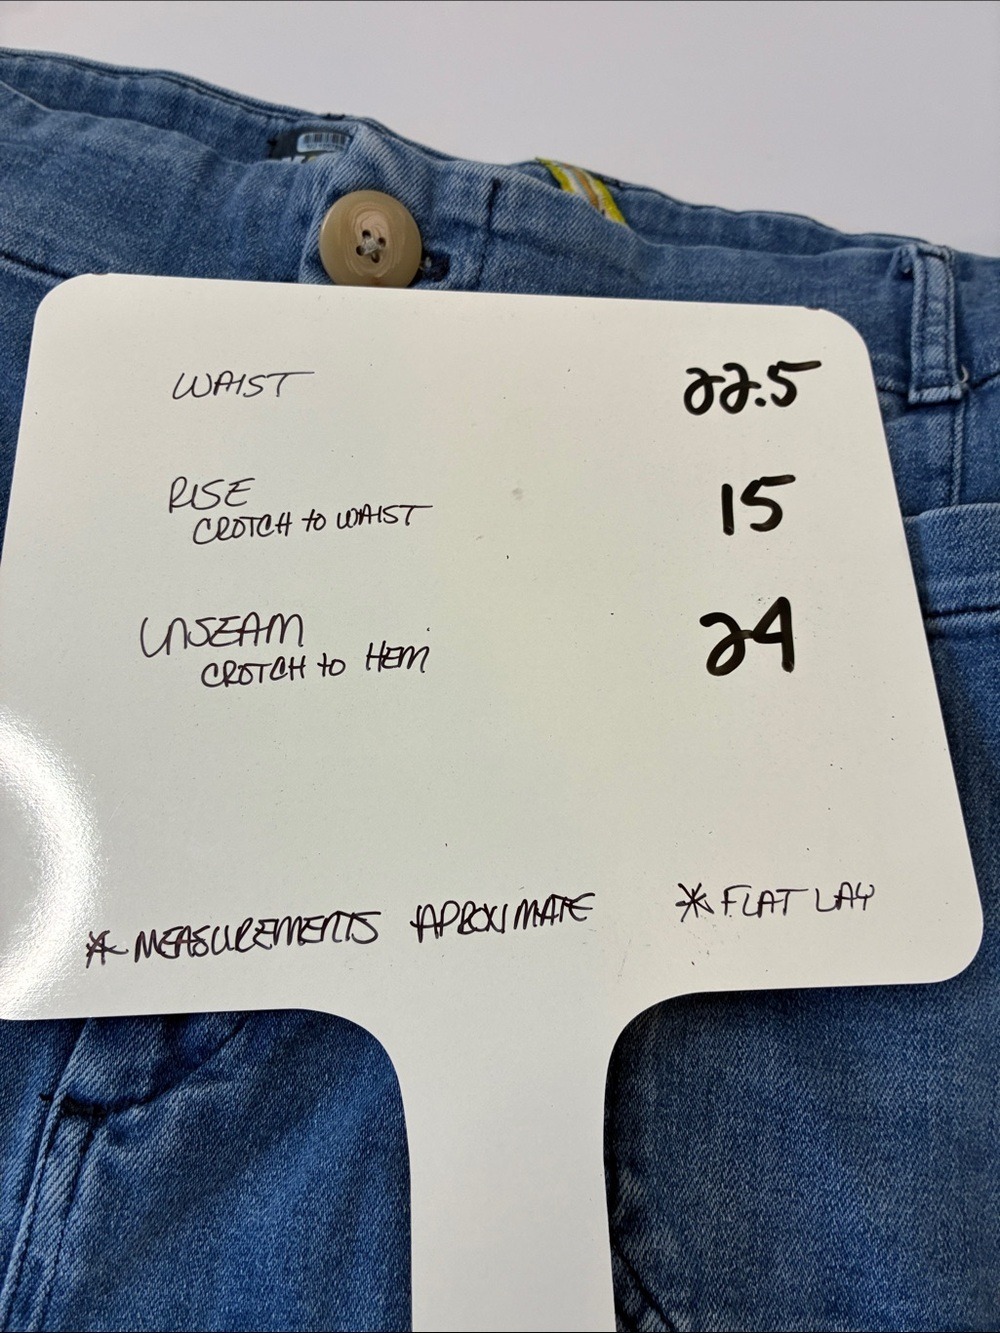 WAIST 22.5
RISE 15
CROTCH to WAIST
INSEAM 24
CROTCH to HEM
* MEASUREMENTS APROXIMATE * FLAT LAY